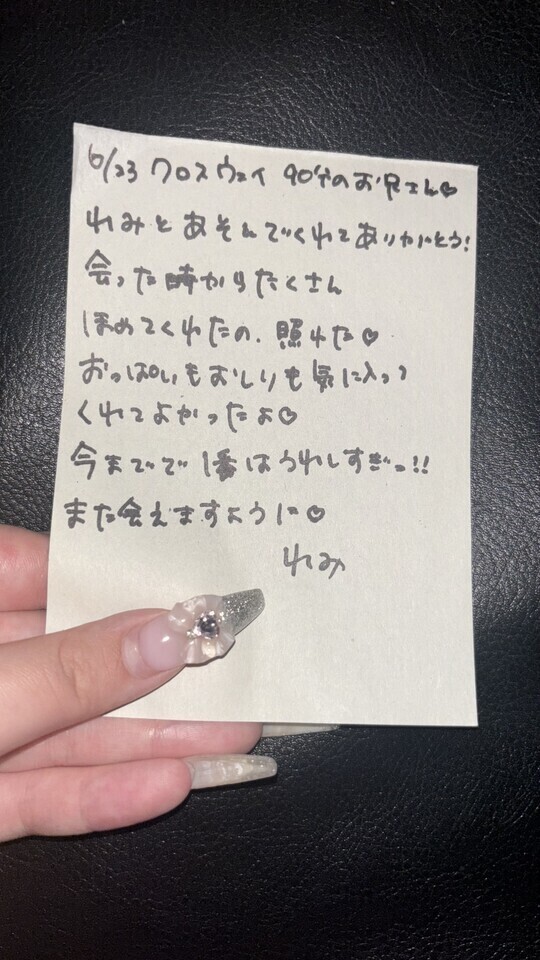 6/23 クロスウェイ 90分のお兄さん♡
れみとあそんでくれてありがとう!
会った時からたくさん
ほめてくれたの、照れた♡
おっぱいもおしりも気に入って
くれてよかったよ♡
今までで1番はうれしすぎっ!!
また会えますように♡
れみ